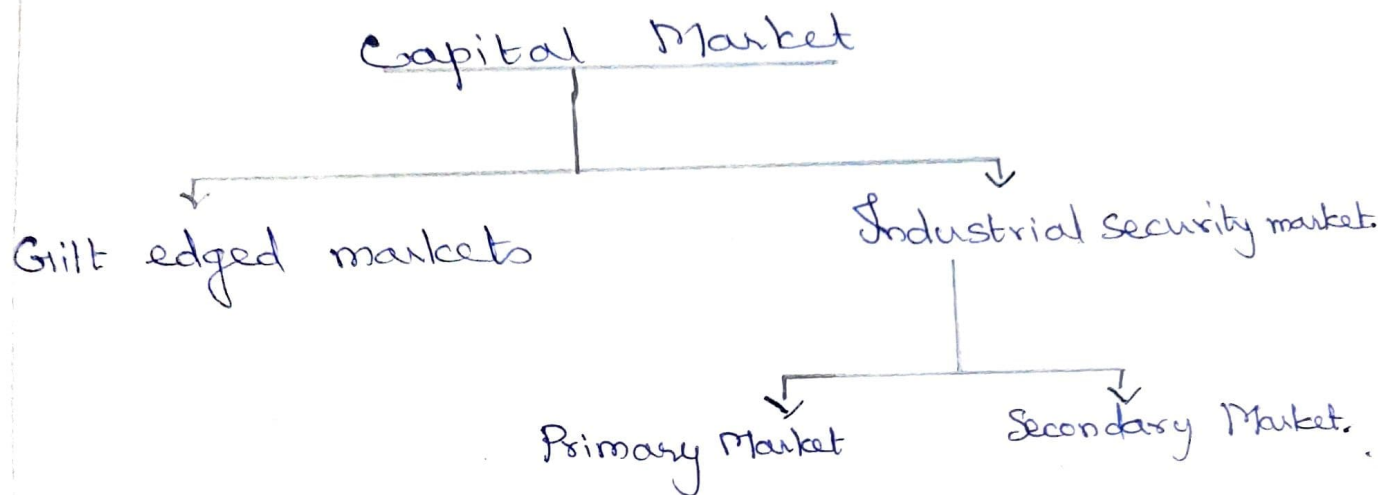 Capital Market
Gilt edged markets
Industrial security market.
Primary Market
Secondary Market.